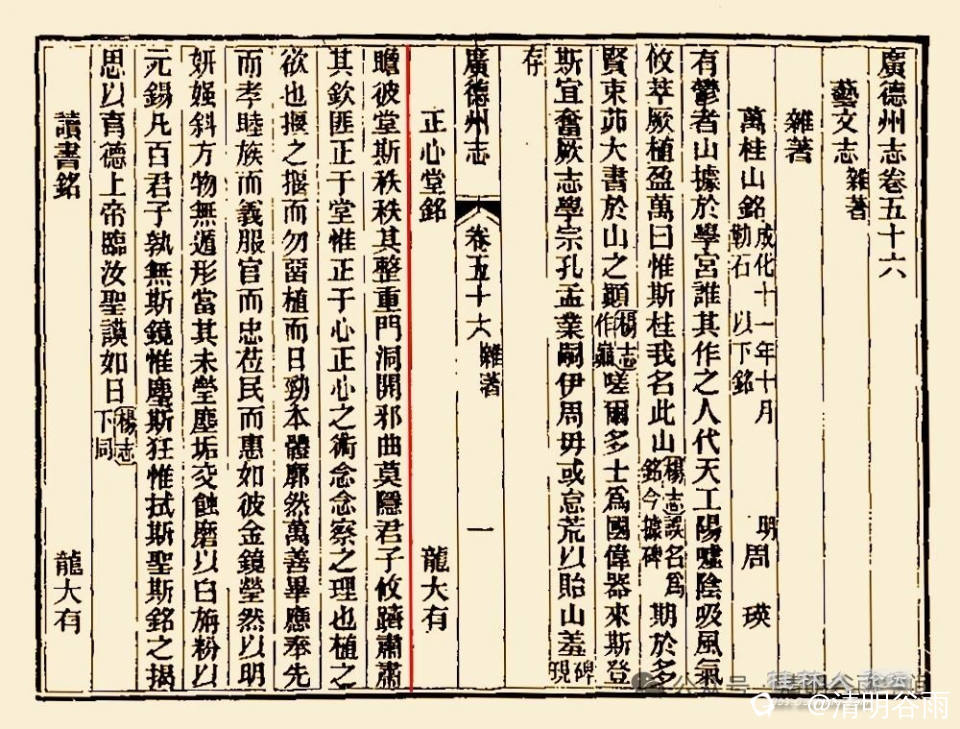 廣德州志卷五十六
藝文志雜著
雜著
萬桂山銘成化十一年十月勒石 以下銘 明周瑛
有鬱者山據於學宮誰其作之人代天工陽噓陰吸風氣
攸萃厥植盈萬曰惟斯桂我名此山楊志誤名爲銘今據碑期於多
賢束茆大書於山之顚楊志作巓嗟爾多士爲國偉器來斯登
斯宜奮厥志學宗孔孟業嗣伊周毋或怠荒以貽山羞碑現
存
廣德州志 卷五十六雜著 一
正心堂銘 龍大有
瞻彼堂斯秩秩其整重門洞開邪曲莫隱君子攸躋肅肅
其欽匪正于堂惟正于心正心之術念念察之理也植之
欲也揠之揠而勿留植而日勁本體廓然萬善畢應奉先
而孝睦族而義服官而忠莅民而惠如彼金鏡瑩然以明
妍媸斜方物無遁形當其未瑩塵垢交蝕磨以白旃粉以
元錫凡百君子孰無斯鏡惟塵斯狂惟拭斯聖斯銘之揭
思以育德上帝臨汝聖謨如日楊志下同
讀書銘 龍大有
公众号
@清明谷雨